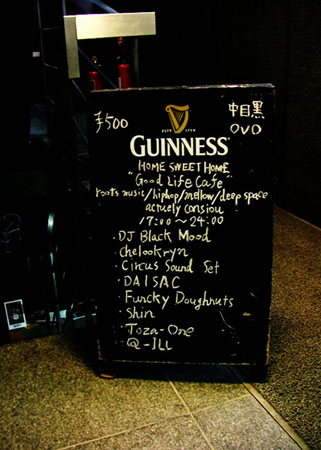 ¥500
中目黒
OVO
ESTD 1759
GUINNESS
HOME SWEET HOME
"Good Life Cafe"
roots music/hiphop/mellow/deep space
17:00〜24:00
・DJ Black Mood
・Chelookryn
・Circus Sound Set
・DAISAC
・Funcky Doughnuts
・Shin
・Joza-One
・Q-ILL